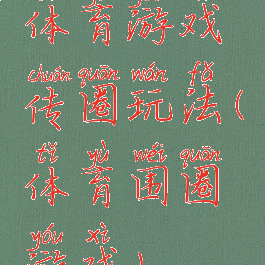 体育游戏
chuán quān wán fǎ
传圈玩法(
tǐ yù wéi quān
体育围圈
yóu xì
游戏)